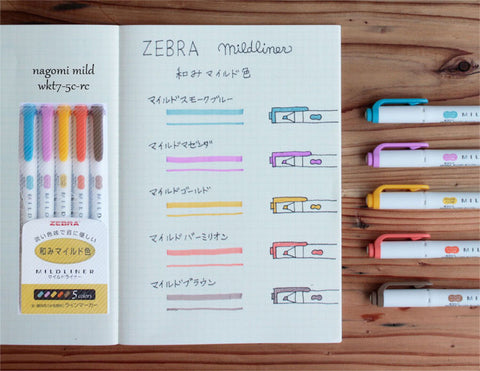 nagomi mild
wkt7-5c-rc
ZEBRA
渋い色味で目に優しい
和みマイルド色
MILDLINER
マイルドライナー
5 colors
ラインマーカー
ZEBRA mildliner
和みマイルド色
マイルドスモークブルー
マイルドマゼンダ
マイルドゴールド
マイルドバーミリオン
マイルドブラウン
MILDL
MILDL
MILDL
MILDL
MILDL